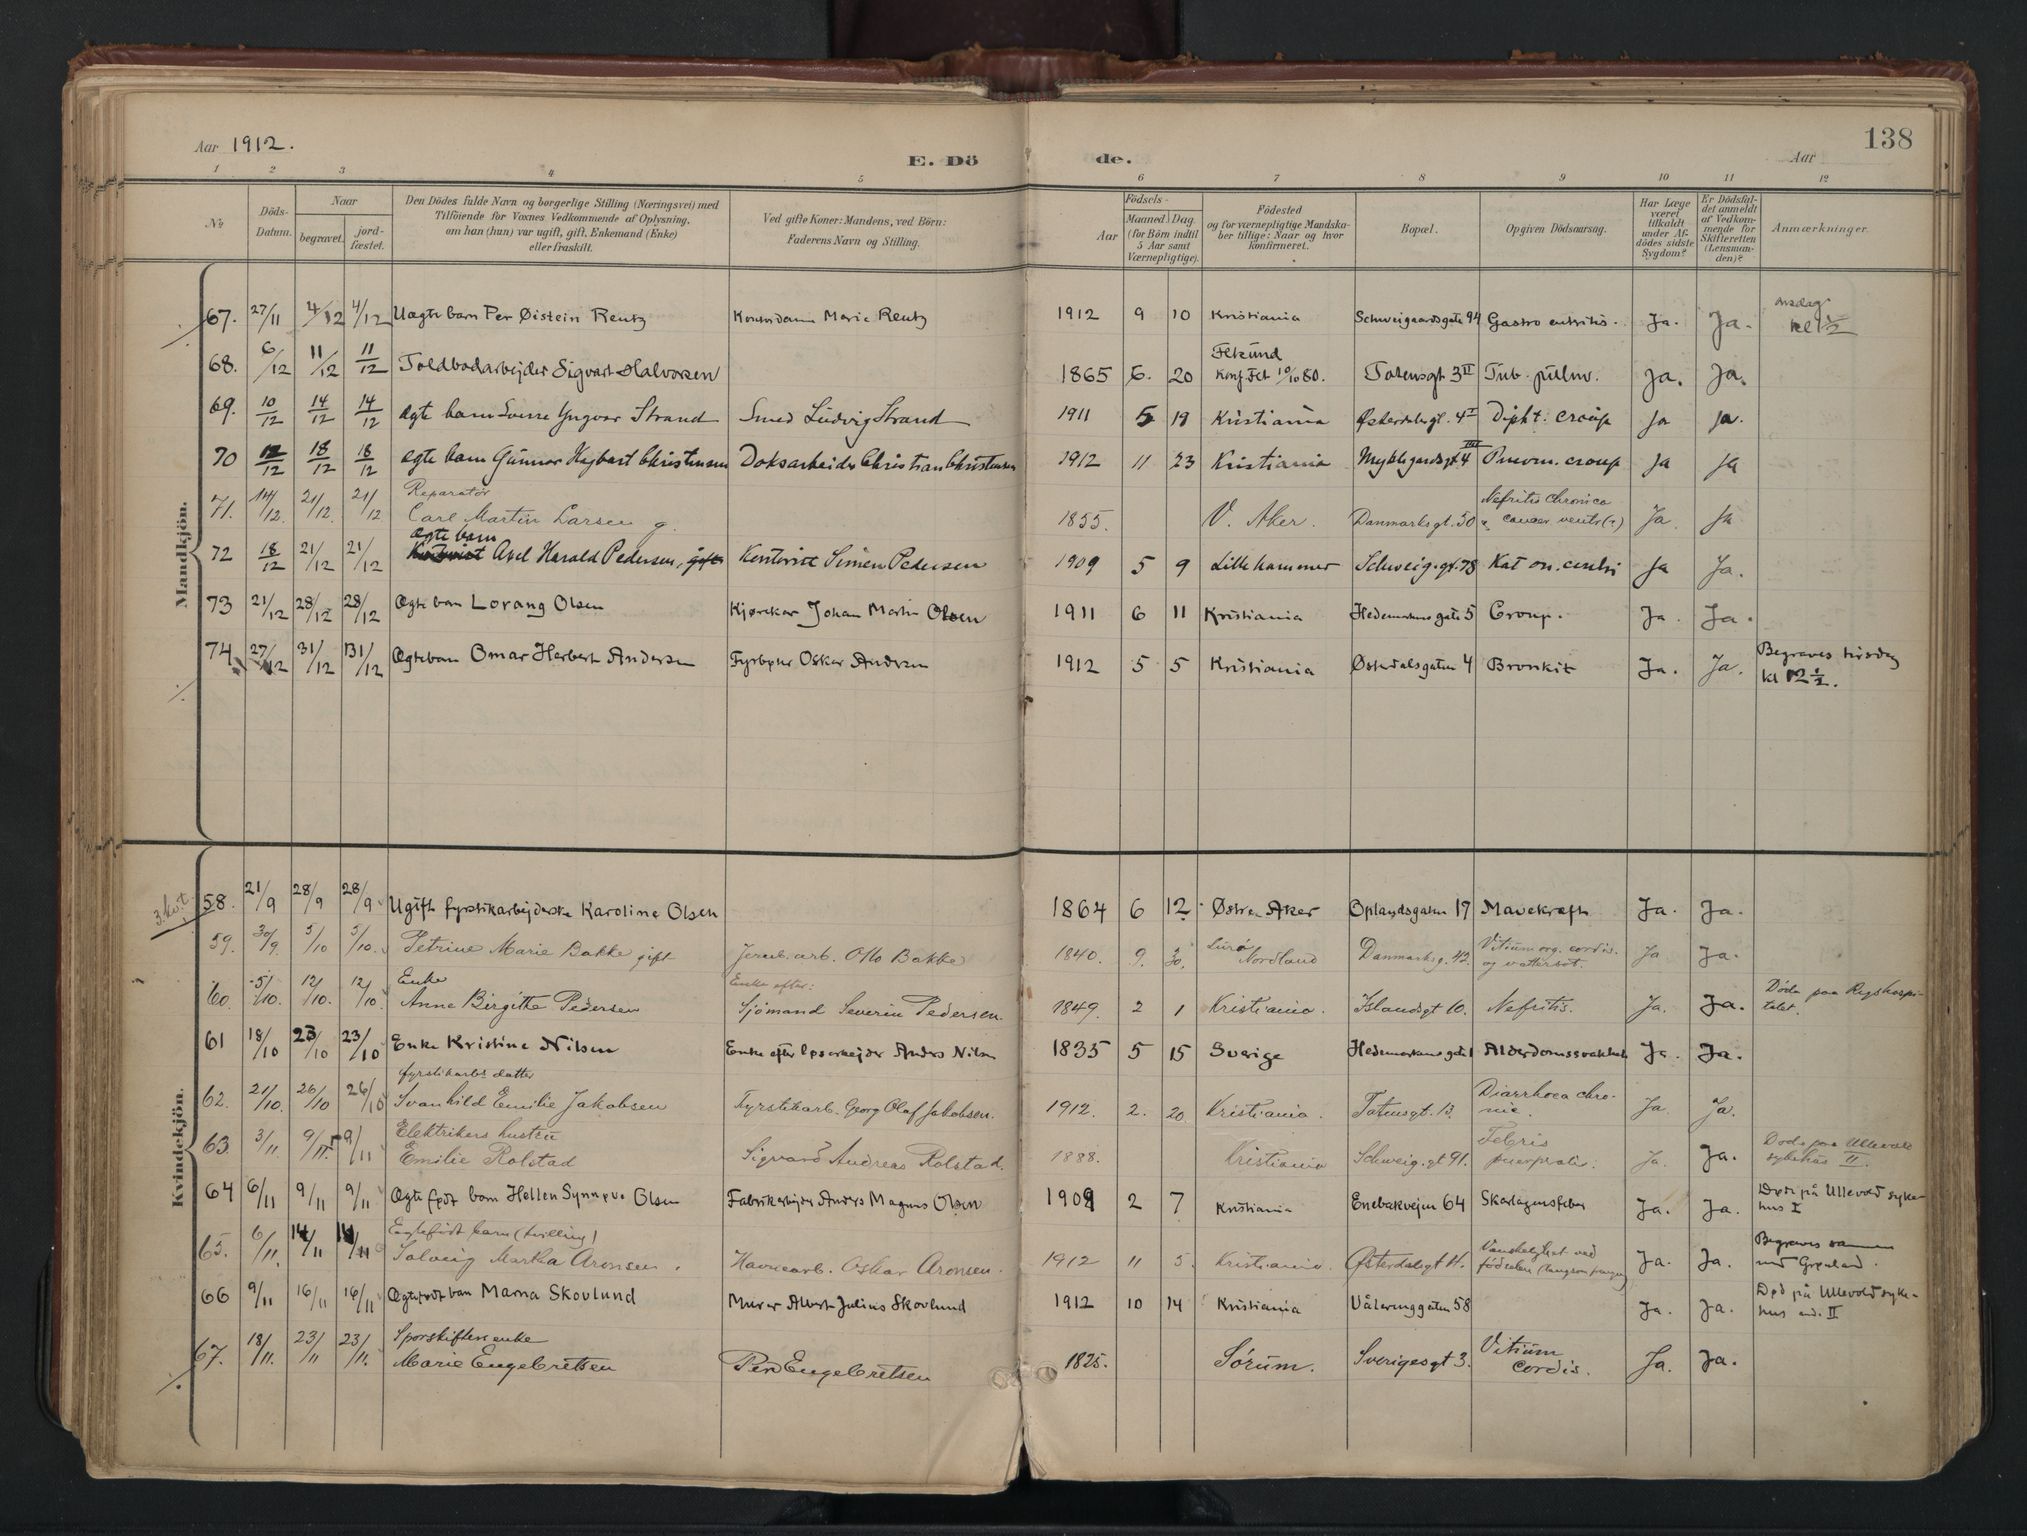 138
Aar 1912.
E. Dö de.
Aar
1 2 3 4 5 6 7 8 9 10 11 12
No
Döds-Datum.
Naar
begravet.
jordfæstet.
Den Dödes fulde Navn og borgerlige Stilling (Næringsvei) med
Tilföiende for Voxnes Vedkommende af Oplysning,
om han (hun) var ugift, gift, Enkemand (Enke)
eller fraskilt.
Ved gifte Koner: Mandens, ved Börn:
Faderens Navn og Stilling.
Aar
Födsels-
Maaned Dag
(for Börn indtil
5 Aar samt
Værnepligtige).
Födested
og for værnepligtige Mandska-
ber tillige: Naar og hvor
konfirmeret.
Bopæl.
Opgiven Dödsaarsag.
Har Læge
været
tilkaldt
under Af-
dödes sidste
Sygdom?
Er Dödsfal-
det anmeldt
af Vedkom-
mende for
Skifteretten
(Lensman-
den)?
Anmærkninger.
Mandkjön.
67. 27/11 4/12 4/12 Uægte barn Per Øistein Rentz Marie Rentz 1912 9 10 Kristiania Schweigaardsgate 94 Gastro entritis. Ja. Ja. onsdag kl 1 1/2
68. 6/12 11/12 11/12 Toldbodarbejder Sigvart Halvorsen 1865 6. 20 Konf. Fet 10/10 80. Totensgt 3 II Tub. pulm. Ja. Ja.
69. 10/12 14/12 14/12 Ægte barn Sverre Yngvar Strand Smed Ludvig Strand 1911 5 19 Kristiania Østerdalsgt. 4 I Dipht. croup Ja Ja.
70 12/12 18/12 18/12 Ægte barn Gunnar Hagbart Christensen Doksarbeider Christian Christensen 1912 11 23 Kristiania Myklegardsgt. 4 III Pneum. croup Ja Ja
Reparatør
71. 14/12. 21/12. 21/12 Carl Martin Larsen g. 1855. V. Aker. Danmarksgt. 50 Nefritis chronica cancer ventr (?) Ja. Ja
Ægte barn
72 18/12 21/12 21/12 Axel Harald Pedersen, gift Kontorist Simen Pedersen 1909 5 9 Lillehammer Schweig.gt. 78 Kat on. Ja Ja.
73 21/12 28/12 28/12 Ægte barn Lorang Olsen Kjørekar Johan Martin Olsen 1911 6 11 Kristiania Hedemarkens gate 5 Croup. Ja. Ja.
74 27/12 31/12 31/12 Ægte barn Omar Herbert Andersen Fyrbøter Oskar Andersen 1912 5 5 Kristiania Østerdalsgaten 4 Bronkit Ja. Ja. Begraves tirsdag kl 12 1/2.
Kvindekjön.
3. kv.t.
58. 21/9 28/9 28/9 Ugift fyrstikarbejderske Karoline Olsen 1864 6 12 Østre Aker Oplandsgaten 17 Mavekræft Ja. Ja.
59. 30/9 5/10 5/10. Petrine Marie Bakke gift Jernb.arb. Otto Bakke 1840. 9. 30. Lurø Nordland Danmarksg. 42. Vitium org. cordis. og vattersot. Ja Ja.
Enke Enke efter:
60. 5/10. 12/10. 12/10 Anne Birgitte Pedersen Sjömand Severin Pedersen. 1849. 2 1 Kristiania. Islandsgt 10. Nefritis. Ja. Ja. Døde paa Rigshospitalet.
61 18/10 23/10 23/10 Enke Kristine Nilsen Enke efter løsarbejder Anders Nilsen 1835 5 15 Sverige Hedemarkens gate 1 Alderdomssvakhet Ja. Ja.
fyrstikarbs datter
62. 21/10. 26/10 26/10 Svanhild Emilie Jakobsen Fyrstikarb. Georg Olaf Jakobsen. 1912. 2. 20. Kristiania. Totensgt. 13. Diarrhoea chronic. Ja. Ja.
Elektrikers hustru
63. 3/11. 9/11. 9/11 Emilie Rolstad Sigvard Andreas Rolstad. 1888. Kristiania Schweig.gt 91. Febris puerpralis. Ja. Ja. Døde paa Ullevold sykehus II.
64 6/11 9/11 9/11 Ægte født barn Hellen Synnøve Olsen Fabrikarbejder Anders Magnus Olsen 1909 2 7 Kristiania Enebakvejen 64 Skarlagensfeber Ja. Ja. Død på Ullevold sykehus I
Egtefødt barn (tvilling)
65. 6/11. 14/11 14/11 Solveig Martha Aronsen. Havnearb. Oskar Aronsen. 1912 11 5. Kristiania. Østerdalsgt 11. Vanskelighet ved fødselen Ja. Ja. Begraves sammen med Grønland.
66 9/11 16/11 16/11 Ægtefødt barn Marna Skovlund Murer Albert Julius Skovlund 1912 10 14 Kristiania Vålerenggaten 58 Ja. Ja. Død på Ullevold sykehus avd. II
Sporskifters enke
67. 18/11. 23/11 23/11. Marie Engebretsen Per Engebretsen 1825. Sørum. Sverigesgt 3. Vitium cordis. Ja. Ja.